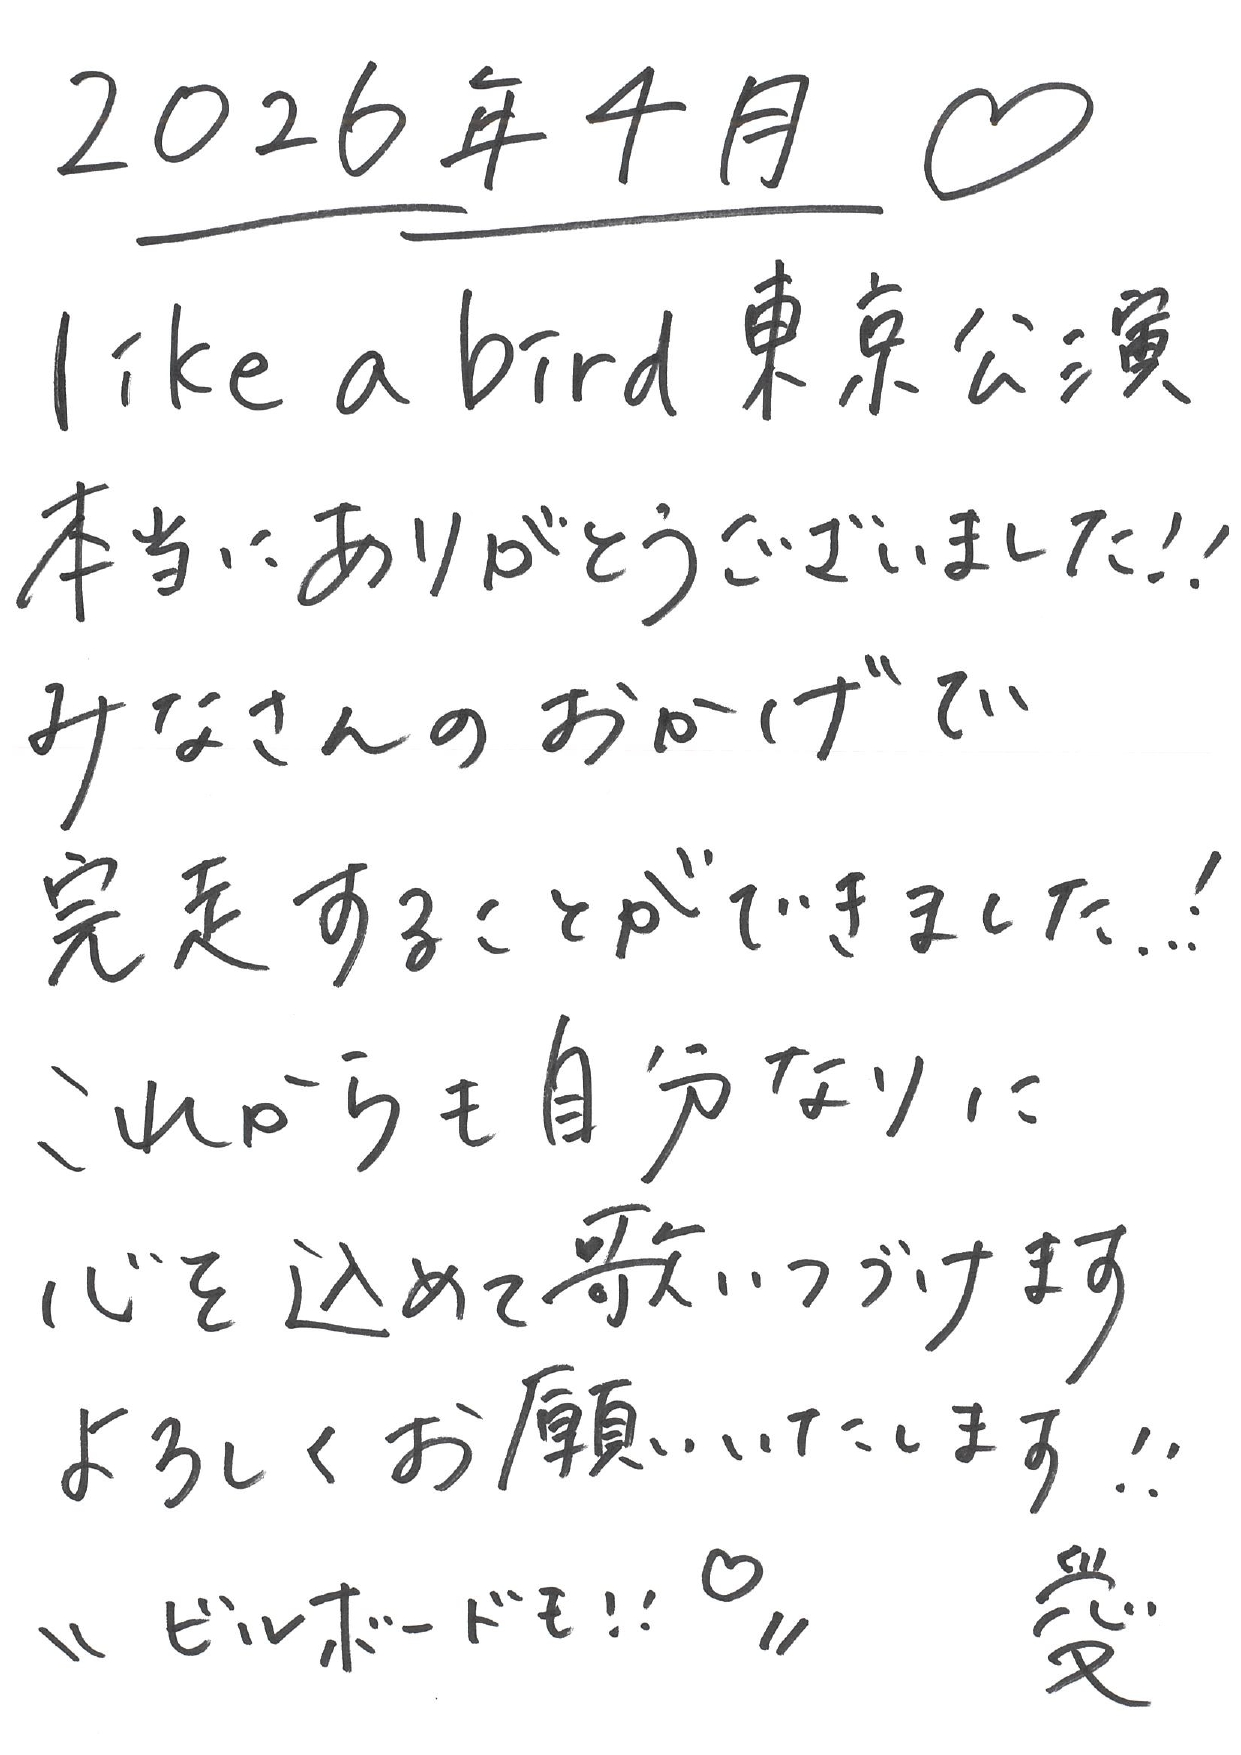 2026年4月♡
like a bird 東京公演
本当にありがとうございました!!
みなさんのおかげで
完走することができました..!
これからも自分なりに
心を込めて歌いつづけます
よろしくお願いいたします!!
\\ ビルボードも!!♡ //
愛